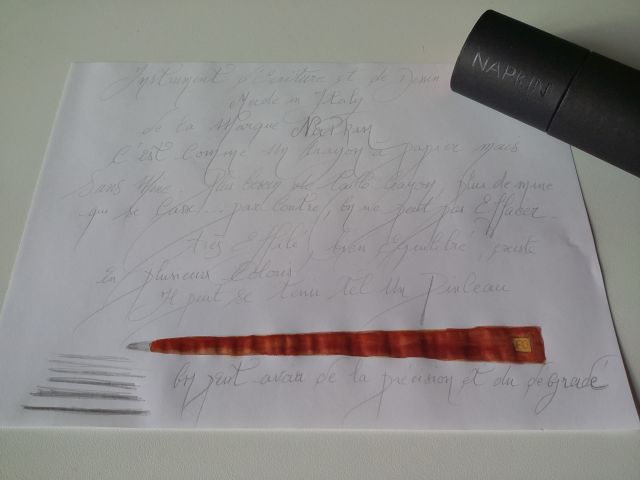 Instrument d'Ecriture et de Dessin
Made in Italy
de la Marque Napkin
NAPKIN
C'est comme un crayon à papier mais
Sans mine. Plus besoin de taille crayon, plus de mine
qui se casse... par contre, on ne peut pas Effacer.
très Effilé, bien Equilibré, existe
en plusieurs Coloris
Il peut se tenir tel un Pinceau
on peut avoir de la précision et du dégradé